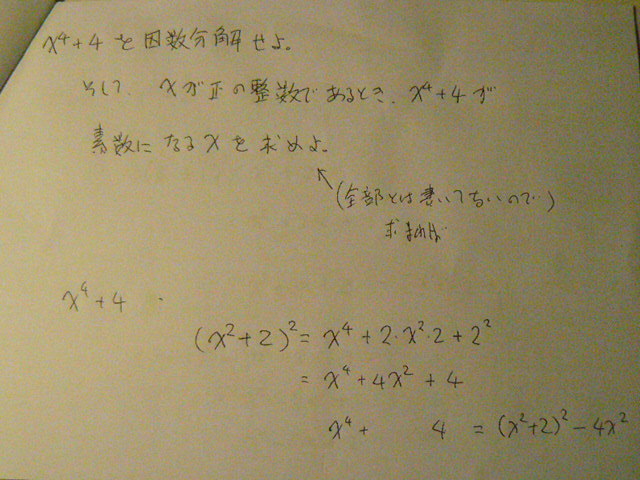 x⁴+4 を因数分解せよ。
そして、xが正の整数であるとき、x⁴+4が
素数になるxを求めよ。
(全部とは書いてないので)
求まれば
x⁴+4
(x²+2)² = x⁴+2·x²·2+2²
= x⁴+4x²+4
x⁴+ 4 = (x²+2)²-4x²